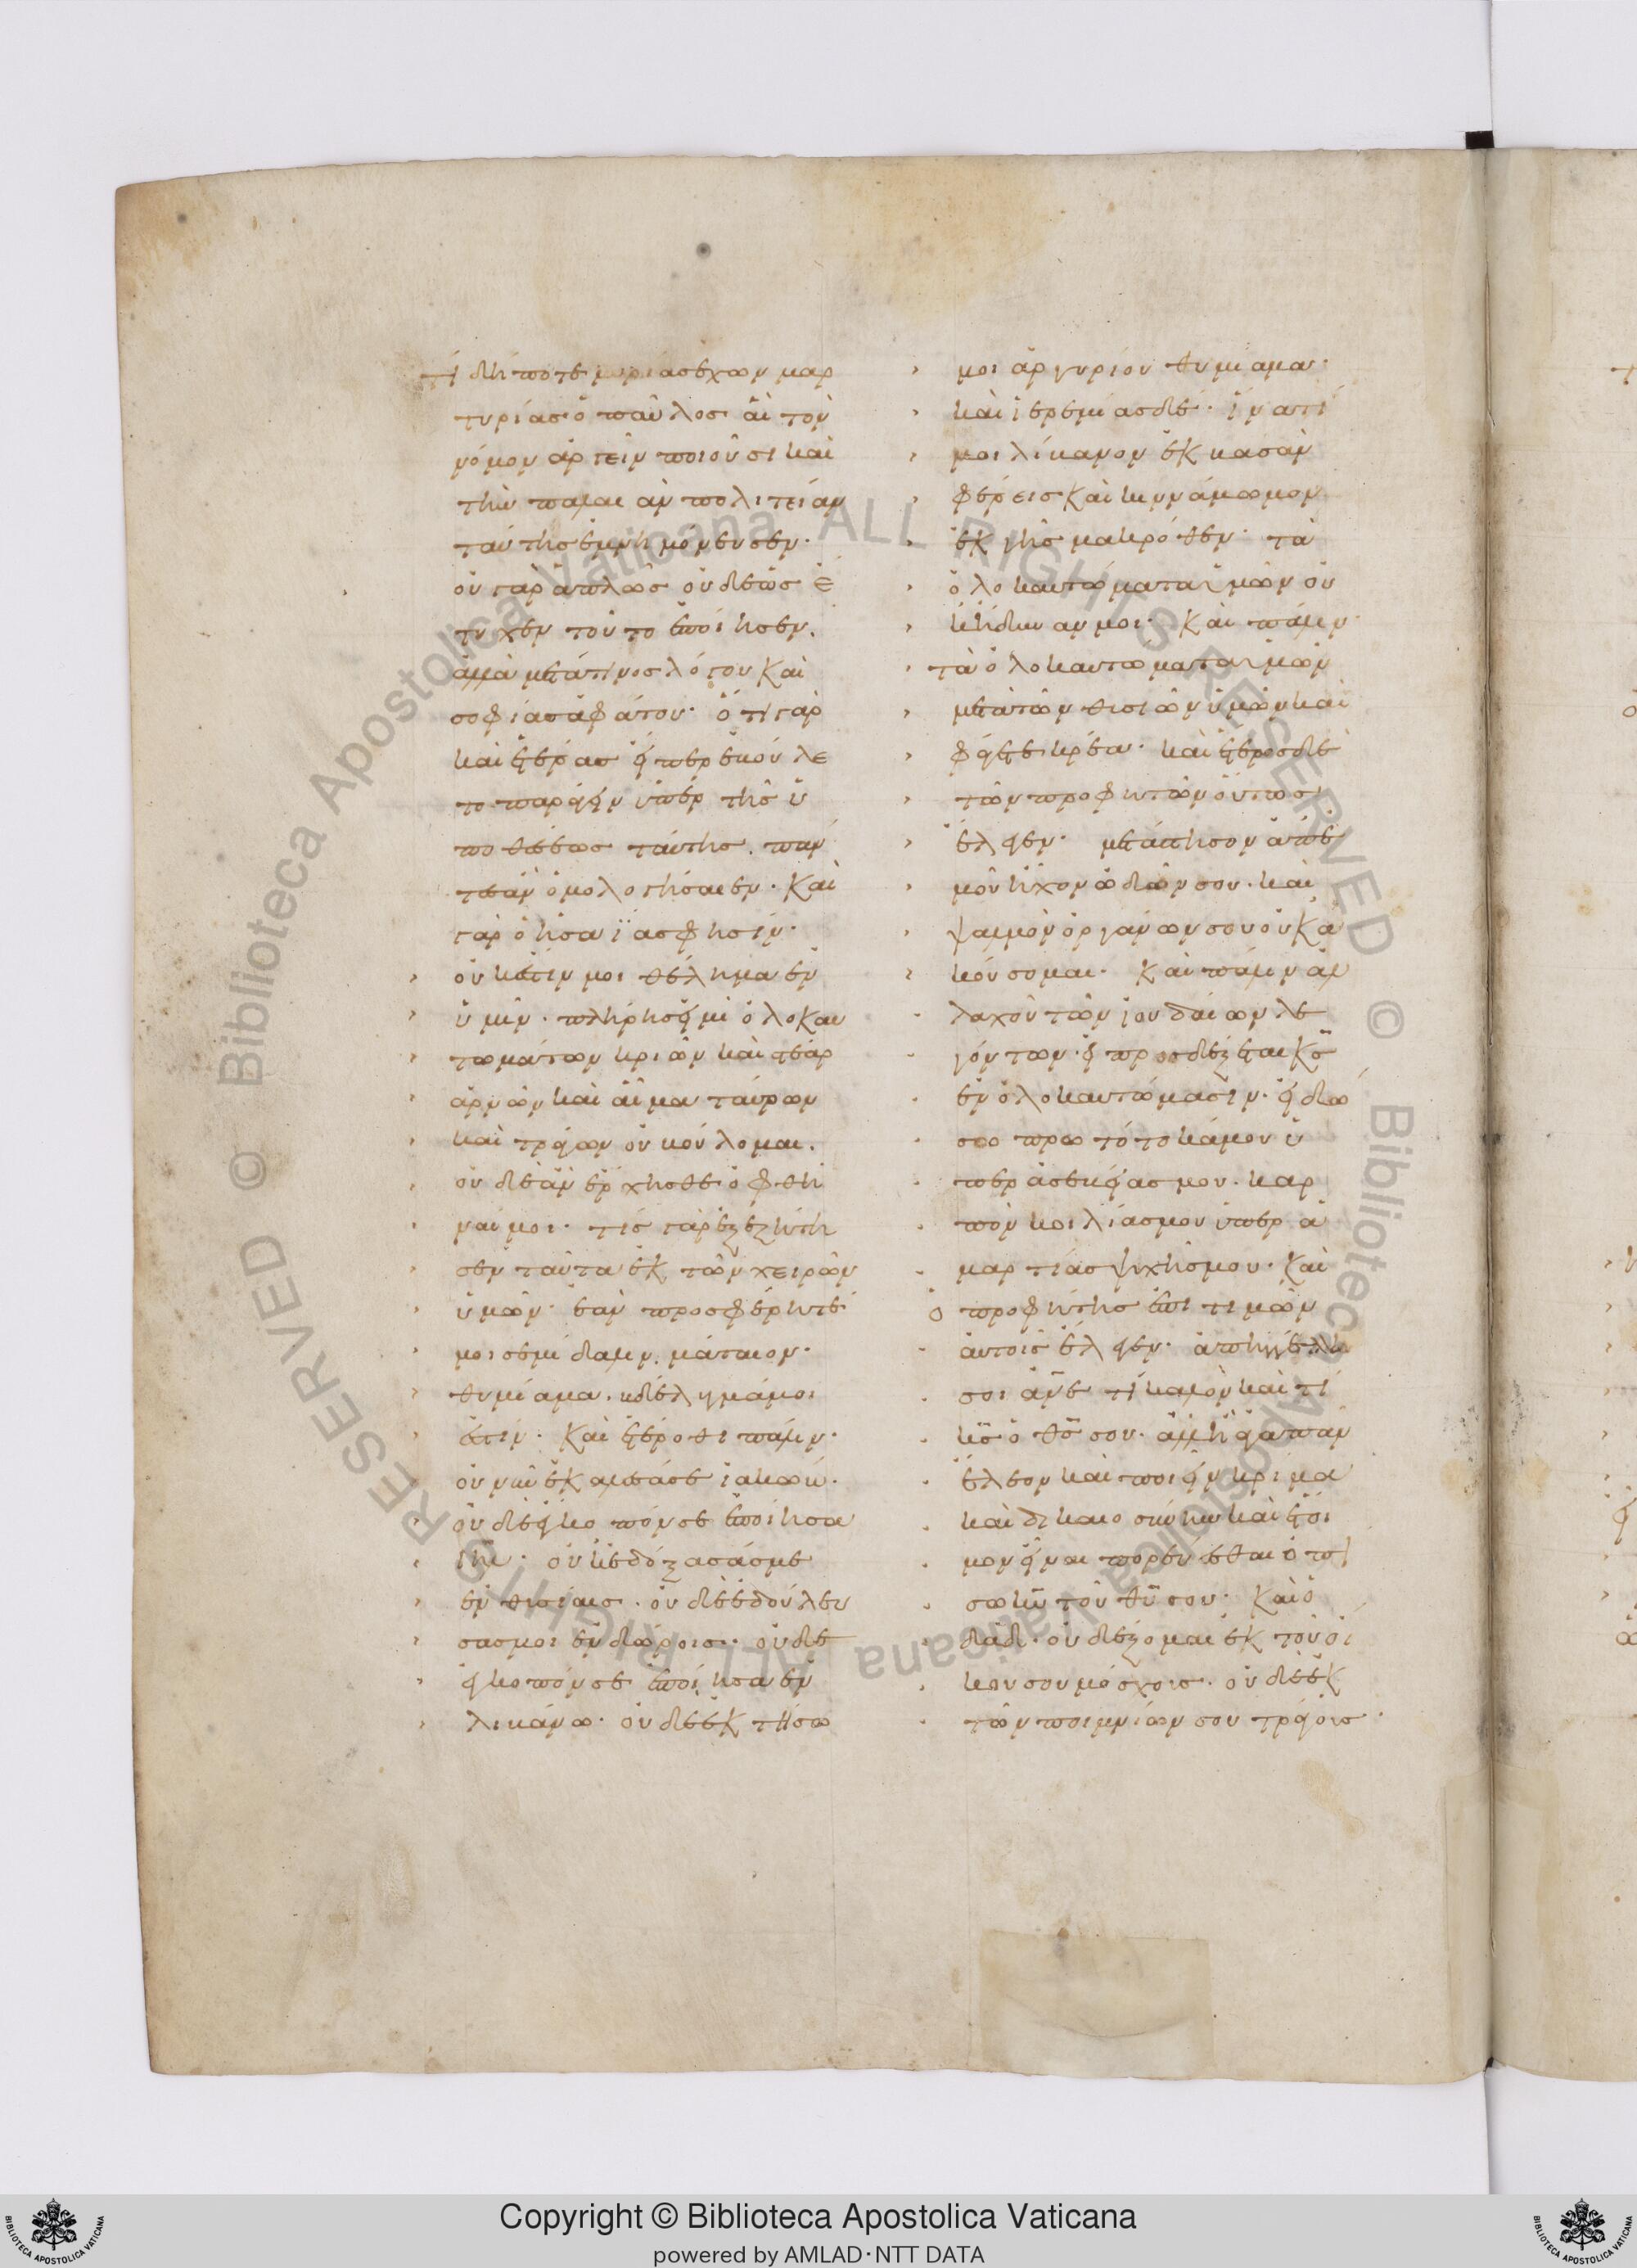 Τί δήποτε μυρίας ἔχων μαρ
τυρίας ὁ παῦλος αἳ τὸν
νόμον ἀργεῖν ποιοῦσι καὶ
τὴν παλαιὰν πολιτείαν
ταύτης ἐμνημόνευσεν·
οὐ γὰρ ἁπλῶς οὐδὲ ὡς ἔ
τυχεν τοῦτο ἐποίησεν.
ἀλλὰ μετά τινος λόγου καὶ
σοφίας ἀφάτου· ὅτι γὰρ
καὶ ἑτέρας εἴπερ ἐβούλε
το παραγαγεῖν ὑπὲρ τῆς ὑ
ποθέσεως ταύτης. πάν
τες ἂν ὁμολογήσαιεν. καὶ
γὰρ ὁ ἡσαΐας φησίν·
οὐκ ἔστιν μοι θέλημα ἐν
ὑμῖν. πλήρης εἰμὶ ὁλοκαυ
τωμάτων κριῶν καὶ στέαρ
ἀρνῶν καὶ αἷμα ταύρων
καὶ τράγων οὐ βούλομαι.
οὐδὲ ἂν ἔρχησθε ὀφθῆ
ναί μοι. τίς γὰρ ἐξεζήτη
σεν ταῦτα ἐκ τῶν χειρῶν
ὑμῶν· ἐὰν προσφέρητέ
μοι σεμίδαλιν. μάταιον·
θυμίαμα. βδέλυγμά μοι
ἐστίν. καὶ ἑτέρωθι πάλιν·
οὐ νῦν ἐκάλεσά σε ἰακώβ.
οὐδὲ ἔγκοπόν σε ἐποίησα
ιηλ. οὐκ ἐδόξασάς με
ἐν θυσίαις. οὐδὲ ἐδούλευ
σάς μοι ἐν δώροις. οὐδὲ
ἔγκοπόν σε ἐποίησα ἐν
λιβάνω. οὐδὲ ἐκτήσω
μοι ἀργυρίου θυμίαμα.
καὶ ἱερεμίας δέ· ἵνα τί
μοι λίβανον ἐκ σαβὰ
φέρεις καὶ κιννάμωμον
ἐκ γῆς μακρόθεν· τὰ
ὁλοκαυτώματα ὑμῶν οὐ
χ ἥδυνάν μοι. καὶ πάλιν
τὰ ὁλοκαυτώματα ὑμῶν
μετὰ τῶν θυσιῶν ὑμῶν καὶ
φάγετε κρέα. καὶ ἕτερος δὲ
τῶν προφητῶν οὕτως
ἔλεγεν· μετάστησον ἀπ' ἐ
μοῦ ἦχον ὠδῶν σου. καὶ
ψαλμὸν ὀργάνων σου οὐκ ἀ
κούσομαι. καὶ πάλιν ἀλ
λαχοῦ τῶν ἰουδαίων λε
γόντων· εἰ προσδέξεται κς
ἐν ὁλοκαυτώμασιν. εἰ δώ
σω πρωτότοκά μου ὑ
πὲρ ἀσεβείας μου. καρ
πὸν κοιλίας μου ὑπὲρ ἁ
μαρτίας ψυχῆς μου. καὶ
ὁ προφήτης ἐπιτιμῶν
αὐτοῖς ἔλεγεν· ἀπηγγέλη
σοι ἄνε τί καλὸν καὶ τί
κς ὁ θς σου. ἀλλ' ἢ ἀγαπᾶν
ἔλεον καὶ ποιεῖν κρίμα
καὶ δικαιοσύνην καὶ ἕτοι
μον εἶναι πορεύεσθαι ὀπί
σω κυ τοῦ θυ σου. καὶ ὁ
δαδ· οὐ δέξομαι ἐκ τοῦ οἴ
κου σου μόσχους. οὐδὲ ἐκ
τῶν ποιμνίων σου τράγους.
Copyright © Biblioteca Apostolica Vaticana
powered by AMLAD·NTT DATA